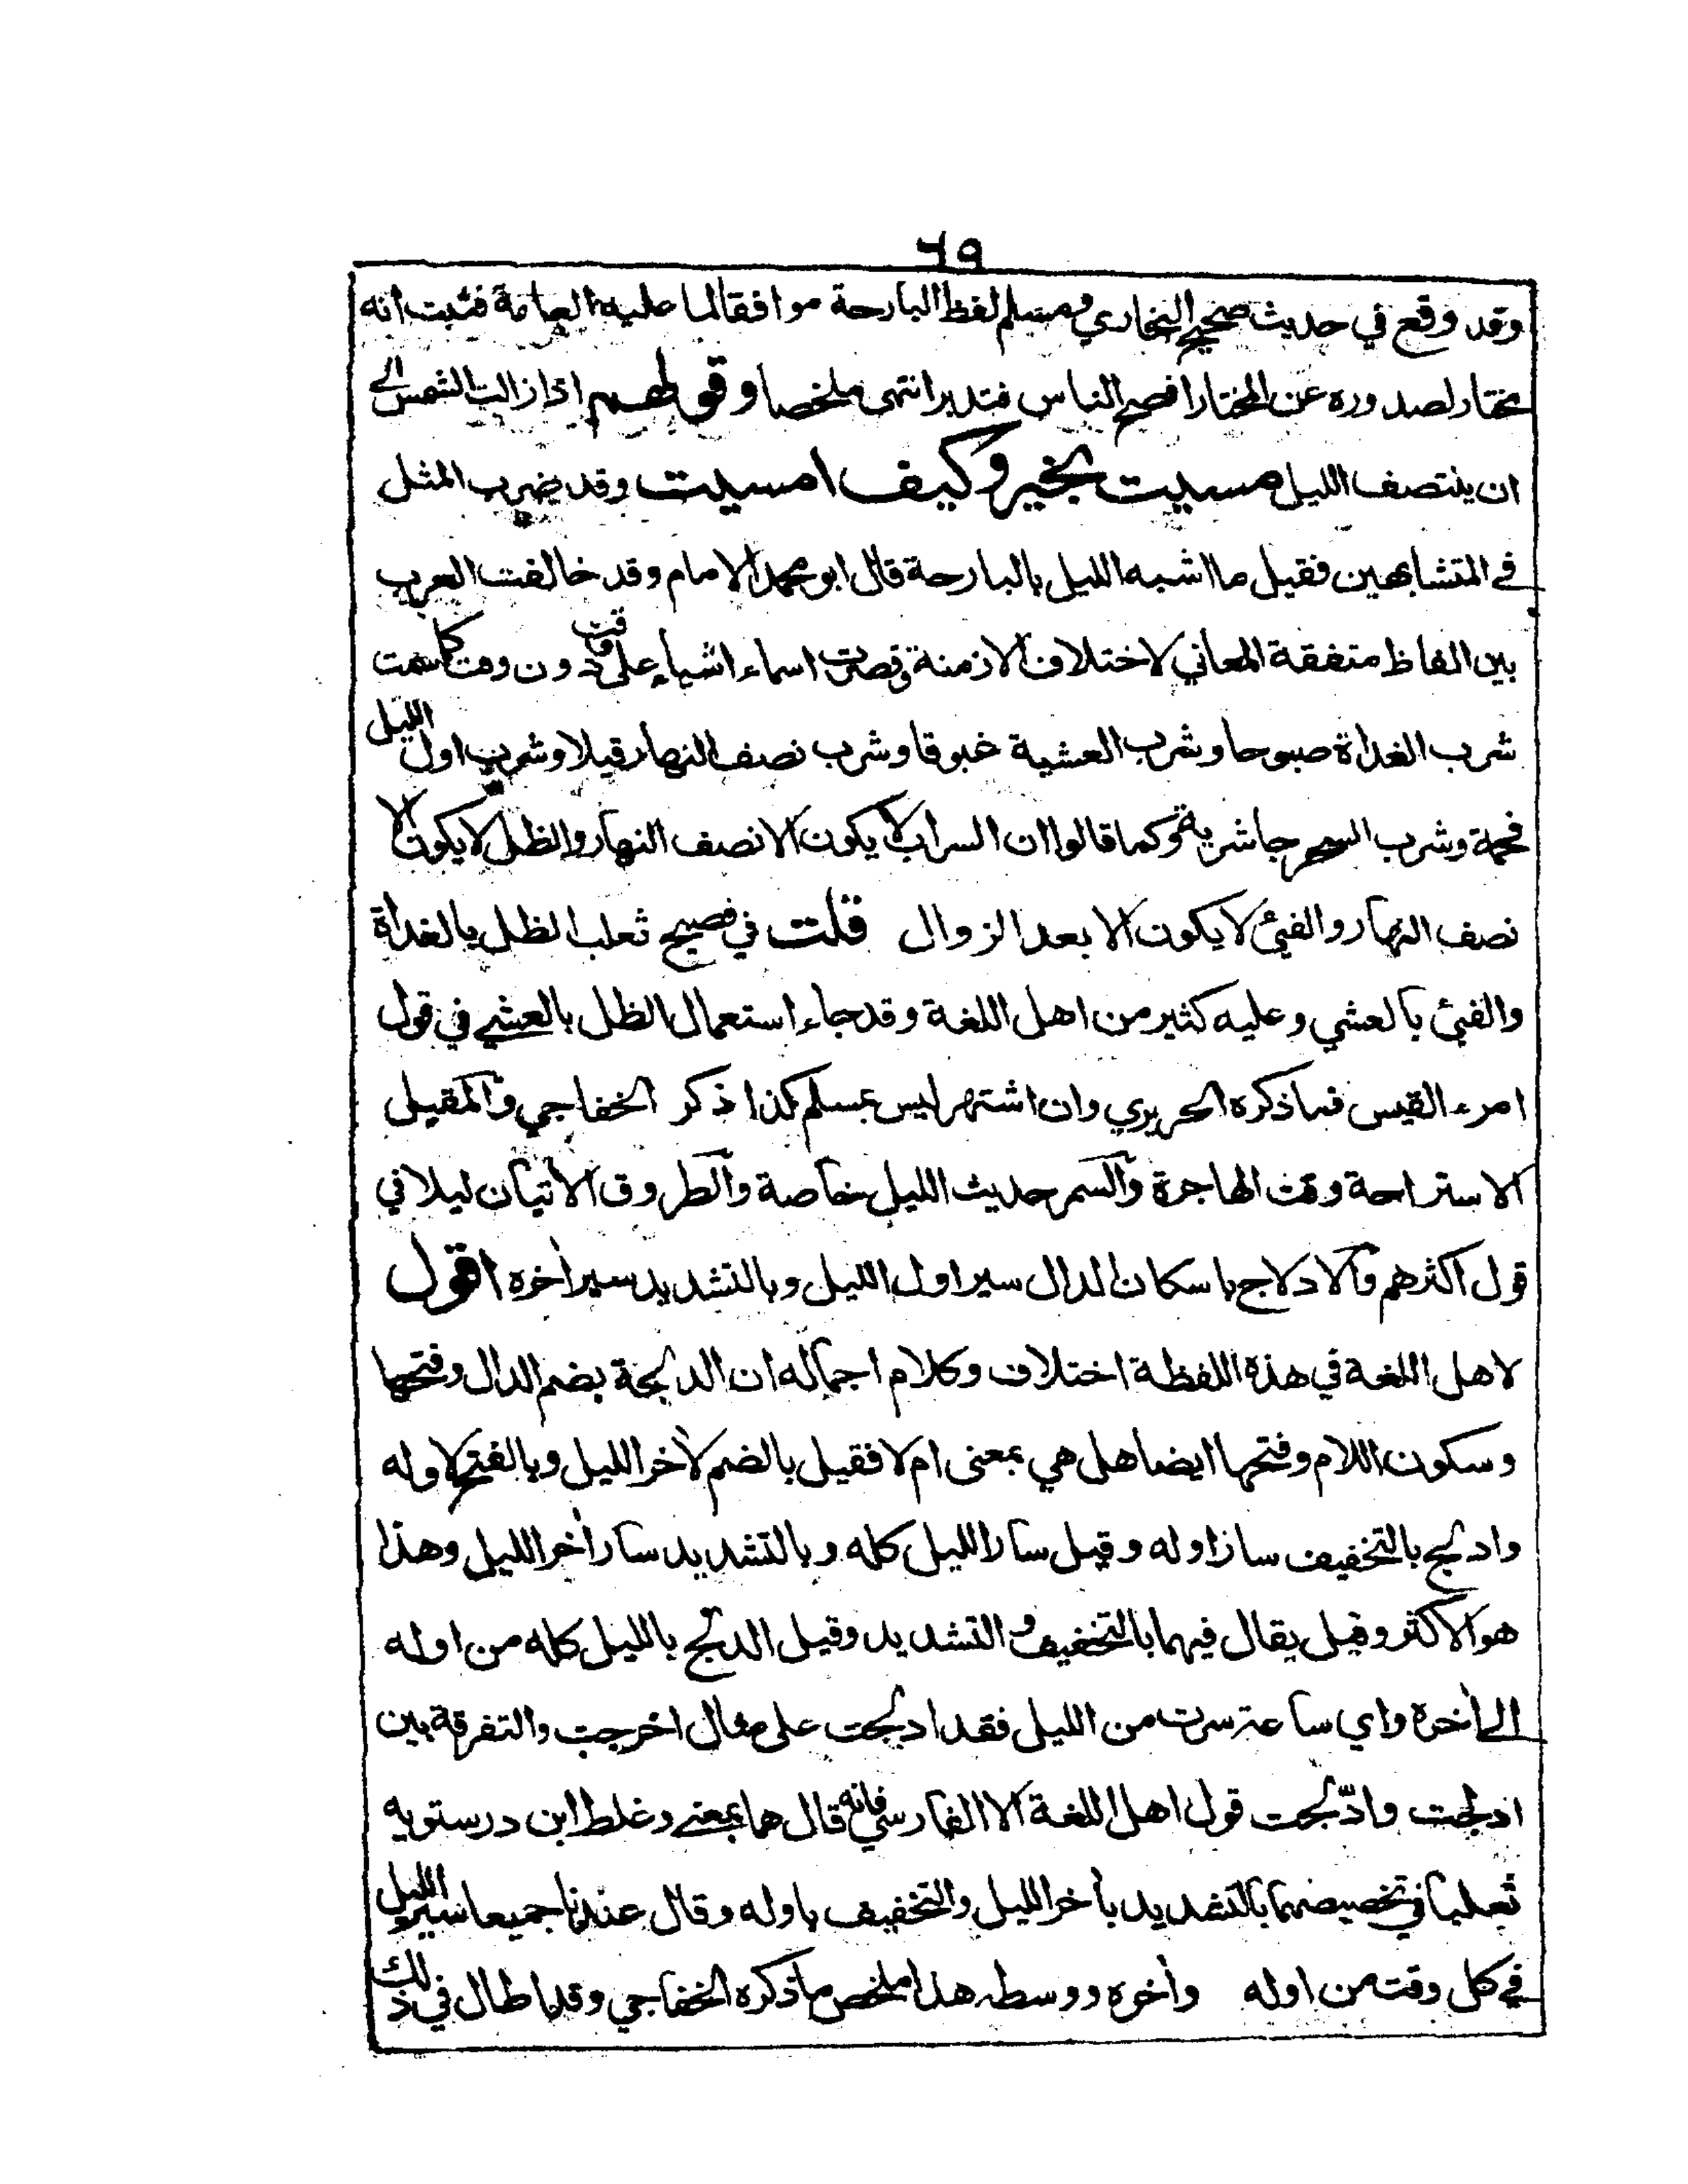 ٦٩
وقد وقع في حديث صحيح البخاري ومسلم لفظ البارحة موافقا لما عليه العامة فثبت انه
مختار لصدوره عن المختار افصح الناس فتدبر انتهى ملخصا وقولهم اذا زالت الشمس الى
ان ينتصف الليل مسيت بخير وكيف امسيت وقد ضرب المثل
في المتشابهين فقيل ما اشبه الليل بالبارحة قال ابو محمد الامام وقد خالفت العرب
بين الفاظ متفقة المعاني لاختلاف الازمنة وقصرت اسماء اشياء على وقت دون وقت كما سمت
شرب الغداة صبوحا وشرب العشية غبوقا وشرب نصف النهار قيلا وشرب اول الليل
فحمة وشرب السحر جاشرية وكما قالوا ان السراب لا يكون الا نصف النهار والظل لا يكون الا
نصف النهار والفيئ لا يكون الا بعد الزوال قلت في فصيح ثعلب الظل بالغداة
والفيئ بالعشي وعليه كثير من اهل اللغة وقد جاء استعمال الظل بالعشي في قول
امرء القيس فما ذكره الحريري وان اشتهر ليس بمسلم كذا ذكر الخفاجي والمقيل
الاستراحة وقت الهاجرة والسمر حديث الليل خاصة والطروق الاتيان ليلا في
قول اكثرهم والادلاج باسكان الدال سير اول الليل وبالتشديد سير آخره اقول
لاهل اللغة في هذه اللفظة اختلاف وكلام اجماله ان الدلجة بضم الدال وفتحها
وسكون اللام وفتحها ايضا هل هي بمعنى ام لا فقيل بالضم لآخر الليل وبالفتح لاوله
وادلج بالتخفيف سار اوله وقيل سار الليل كله وبالتشديد سار آخر الليل وهذا
هو الاكثر وقيل يقال فيهما بالتخفيف والتشديد وقيل الدلج بالليل كله من اوله
الى آخره واي ساعة سرت من الليل فقد ادلجت على مثال اخرجت والتفرقة بين
ادلجت وادّلجت قول اهل اللغة الا الفارسي فانه قال هما بمعنى وغلط ابن درستويه
ثعلبا في تخصيصهما بالتشديد بآخر الليل والتخفيف باوله وقال عندنا جميعا سير الليل
في كل وقت من اوله وآخره ووسطه هذا ملخص ما ذكره الخفاجي وقد اطال في ذلك